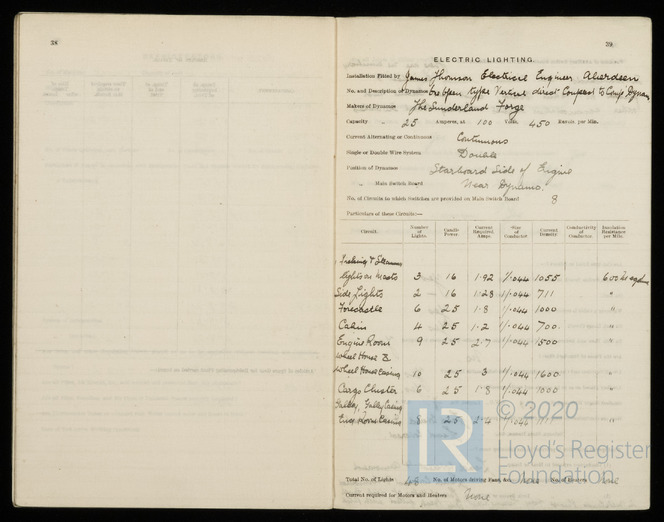 28
39
ELECTRIC LIGHTING.
Installation Fitted by James Thomson Electrical Engineer Aberdeen
No. and Description of Dynamos One Open type Vertical direct Coupled to Comp Dynamo
Makers of Dynamos The Sunderland Forge
Capacity " 25 Amperes, at 100 Volts, 450 Revols. per Min.
Current Alternating or Continuous Continuous
Single or Double Wire System Double
Position of Dynamos Starboard Side of Engine
" Main Switch Board Near Dynamo.
No. of Circuits to which Switches are provided on Main Switch Board 8
Particulars of these Circuits:—
Circuit. Number of Lights. Candle Power. Current Required. Amps. Size of Conductor. Current Density. Conductivity of Conductor. Insulation Resistance per Mile.
Fishing & Steaming
lights on Masts 3 16 1.92 1/.044 1055 600
Side Lights 2 16 1.28 1/.044 711 "
Forecastle 6 25 1.8 1/.044 1000 "
Cabin 4 25 1.2 1/.044 700 "
Engine Room 9 25 2.7 1/.044 1500 "
Wheel House &
Wheel House Casing 10 25 3 1/.044 1600 "
Cargo Cluster 6 25 1.8 1/.044 1000 "
Galley, Galley Casing
Eng. Room Casing 8 25 2.4
© 2020
LR
Lloyd's Register
Foundation
Total No. of Lights 48 No. of Motors driving Fans, &c. None No. of Heaters None
Current required for Motors and Heaters None